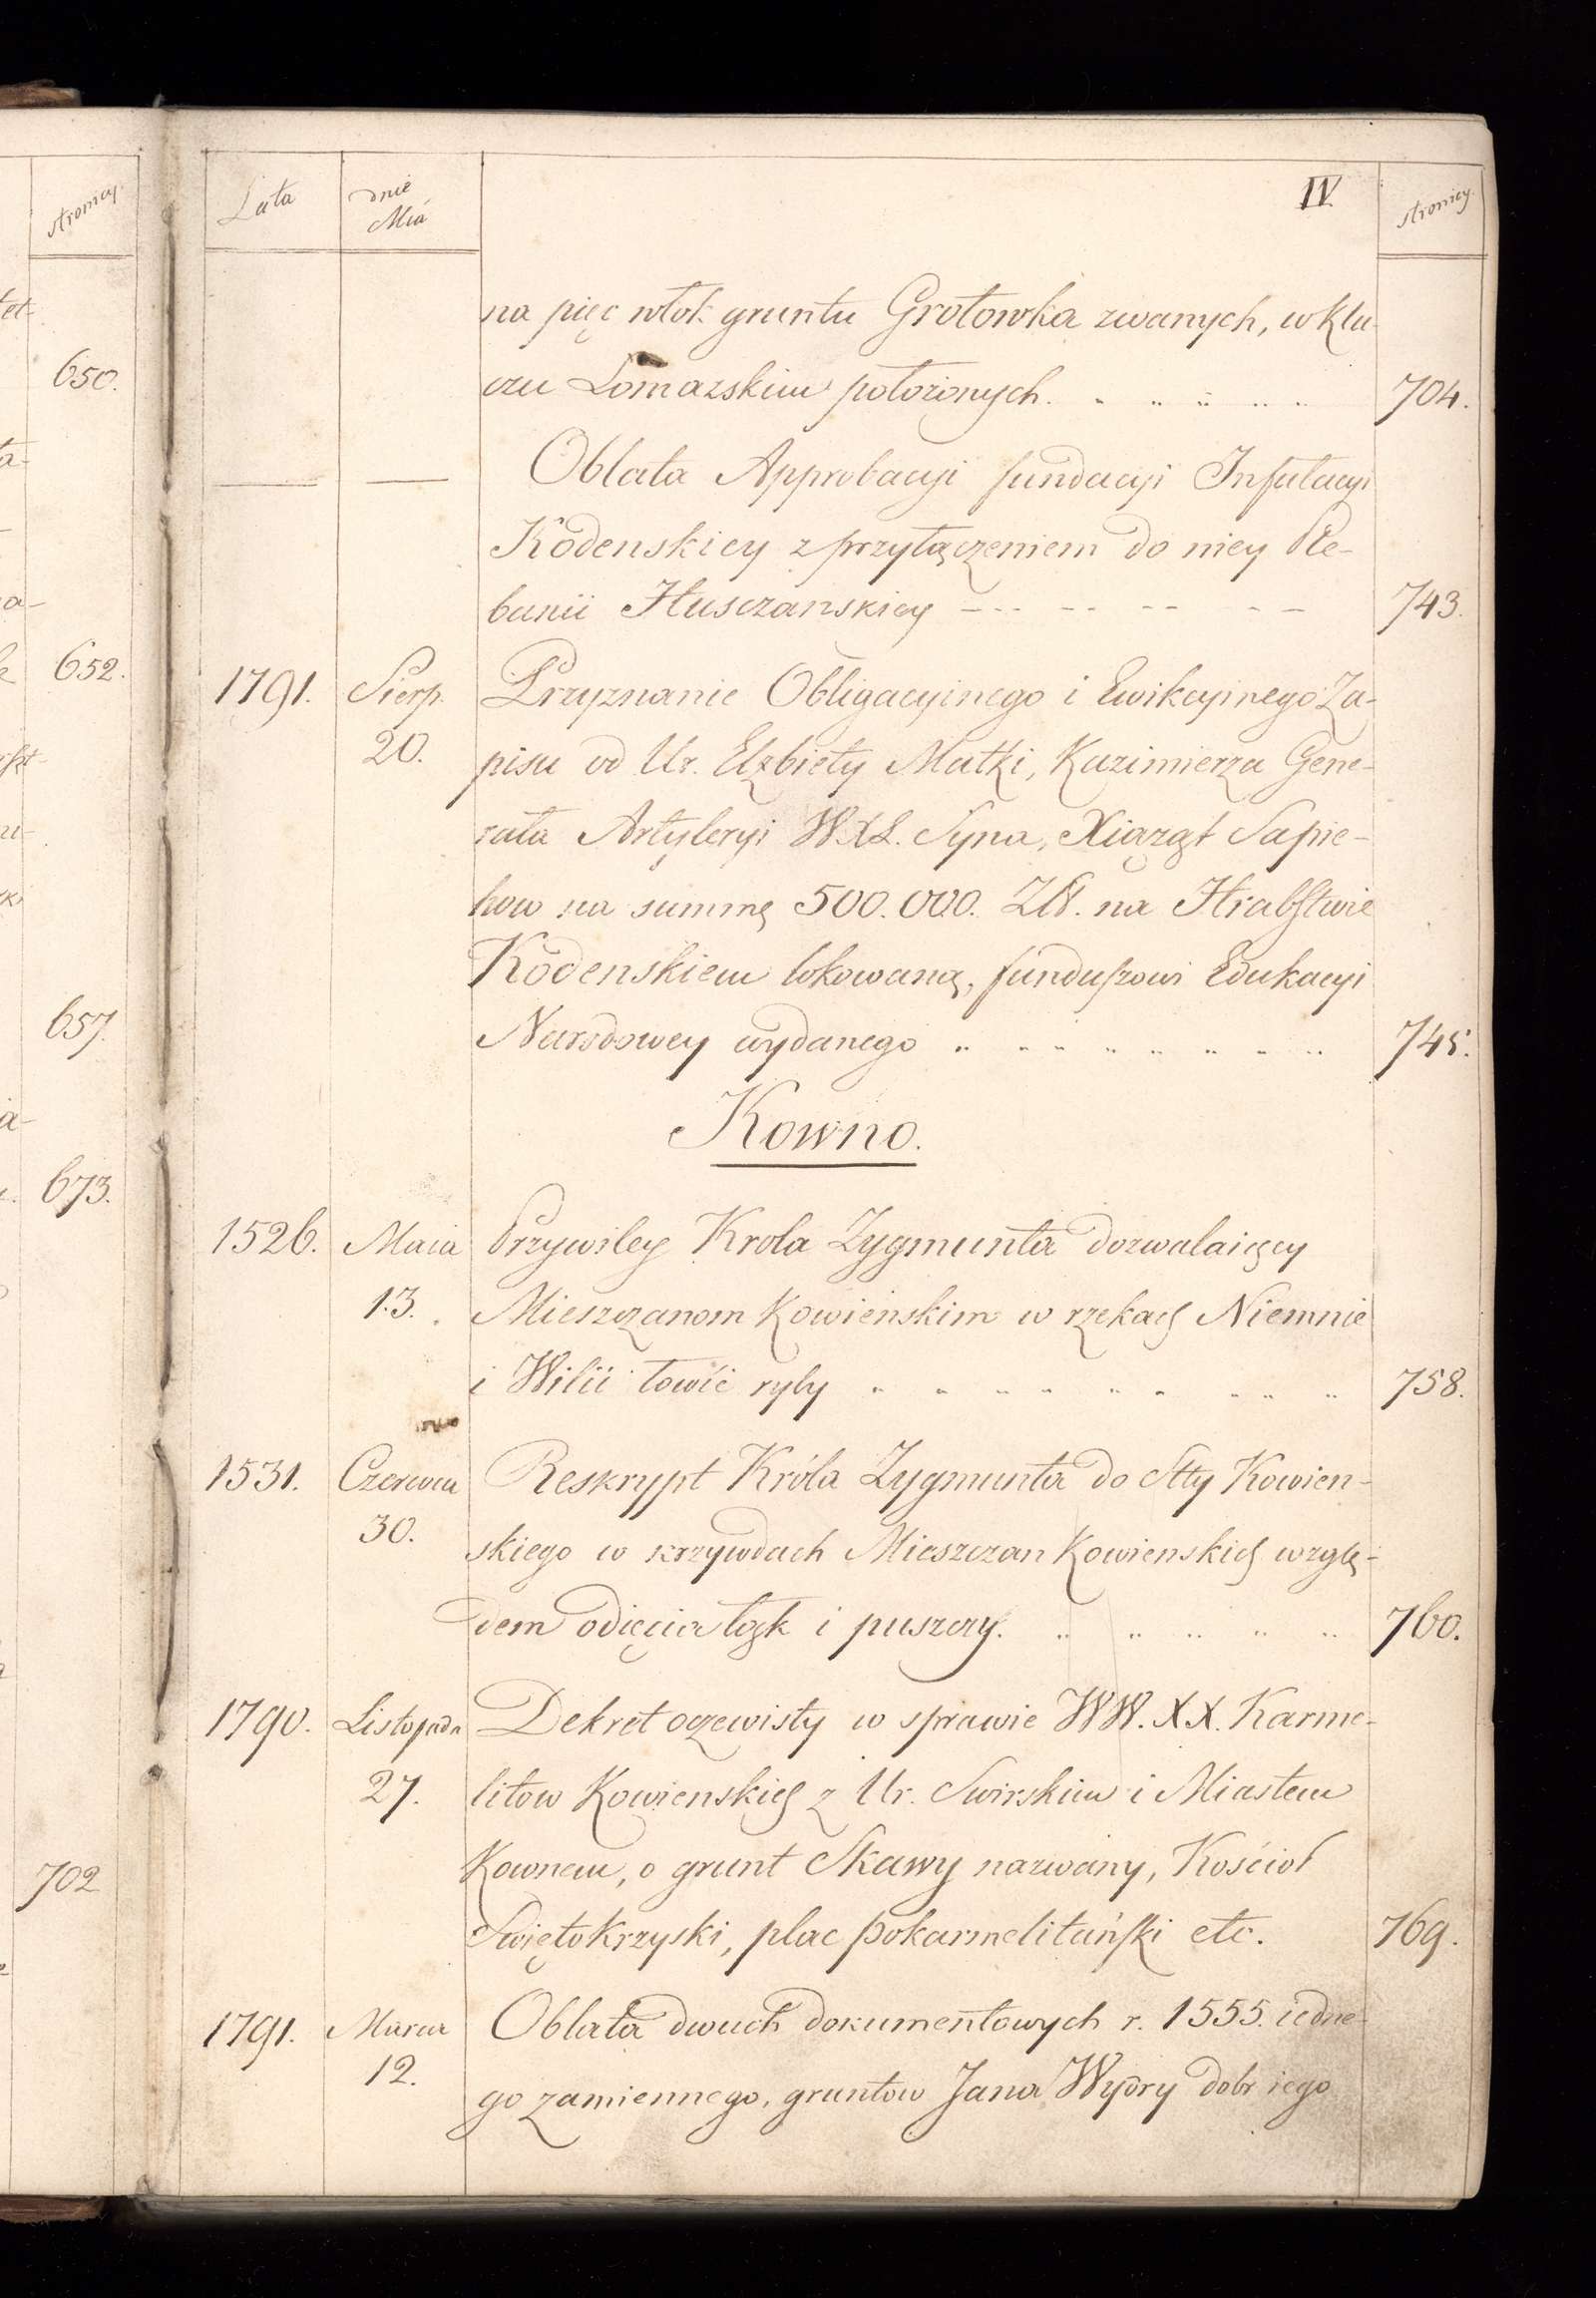 stronicy.
650.
652.
657.
673.
702
Lata
dnie
Mią
IV.
stronicy.
na pięc włok gruntu Grotowka zwanych, w klu-
czu Lomazskim położonych. 704.
Oblata Approbacyi fundacyi Infułacyi
Kodenskiey z przyłączeniem do niey Ple-
banii Husczanskiey 743.
1791. Sierp. Przyznanie Obligacyinego i Ewikcyinego Za-
20. pisu od Ur. Elżbiety Matki, Kazimierza Gene-
rała Artyleryi W.X.L. Syna, Xiążąt Sapie-
how na summę 500.000. Złł. na Hrabstwie
Kodenskiem lokowaną, funduszowi Edukacyi
Narodowey wydanego 745.
Kowno.
1526. Maia Przywiley Krola Zygmunta dozwalaiący
13. Mieszczanom Kowieńskim w rzekach Niemnie
i Wilii łowić ryby 758.
1531. Czerwca Reskrypt Króla Zygmunta do Stty Kowien-
30. skiego w krzywdach Mieszczan Kowienskich wzglę-
dem odięcia łąk i puszczy. 760.
1790. Listopada Dekret oczewisty w sprawie WW.XX. Karme-
27. litow Kowienskich z Ur. Swirskim i Miastem
Kownem, o grunt Skawy nazwany, Kościoł
Swiętokrzyski, plac pokarmelitański etc. 769.
1791. Marca Oblata dwuch dokumentowych r. 1555. iedne-
12. go zamiennego, gruntow Jana dobr iego